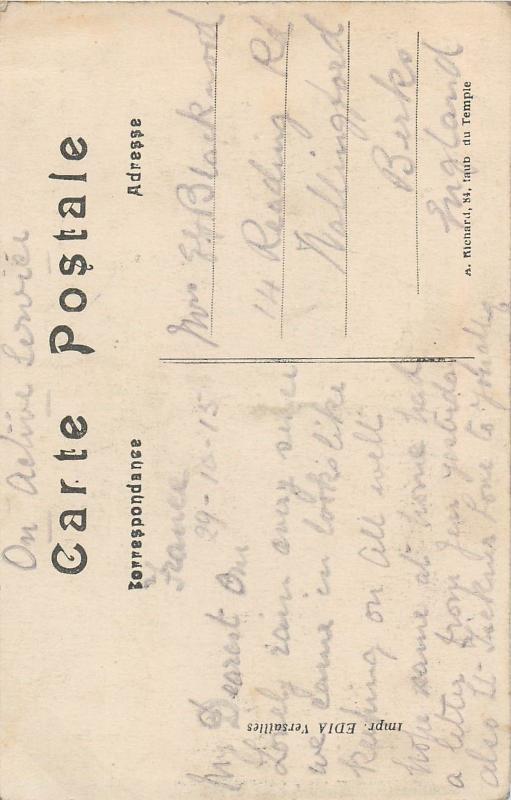 On Active Service
Carte Postale
Correspondance
Adresse
France
29-10-15
My Dearest One
Lovely rain every since
we came in looks like
keeping on All well
hope same at home had
a letter from Jim yesterday
also Love to you all
Mrs Blackwood
14 Reading Rd
Wallingford
Berks
England
A. Richard, 84, faub du Temple
Impr. EDIA Versailles